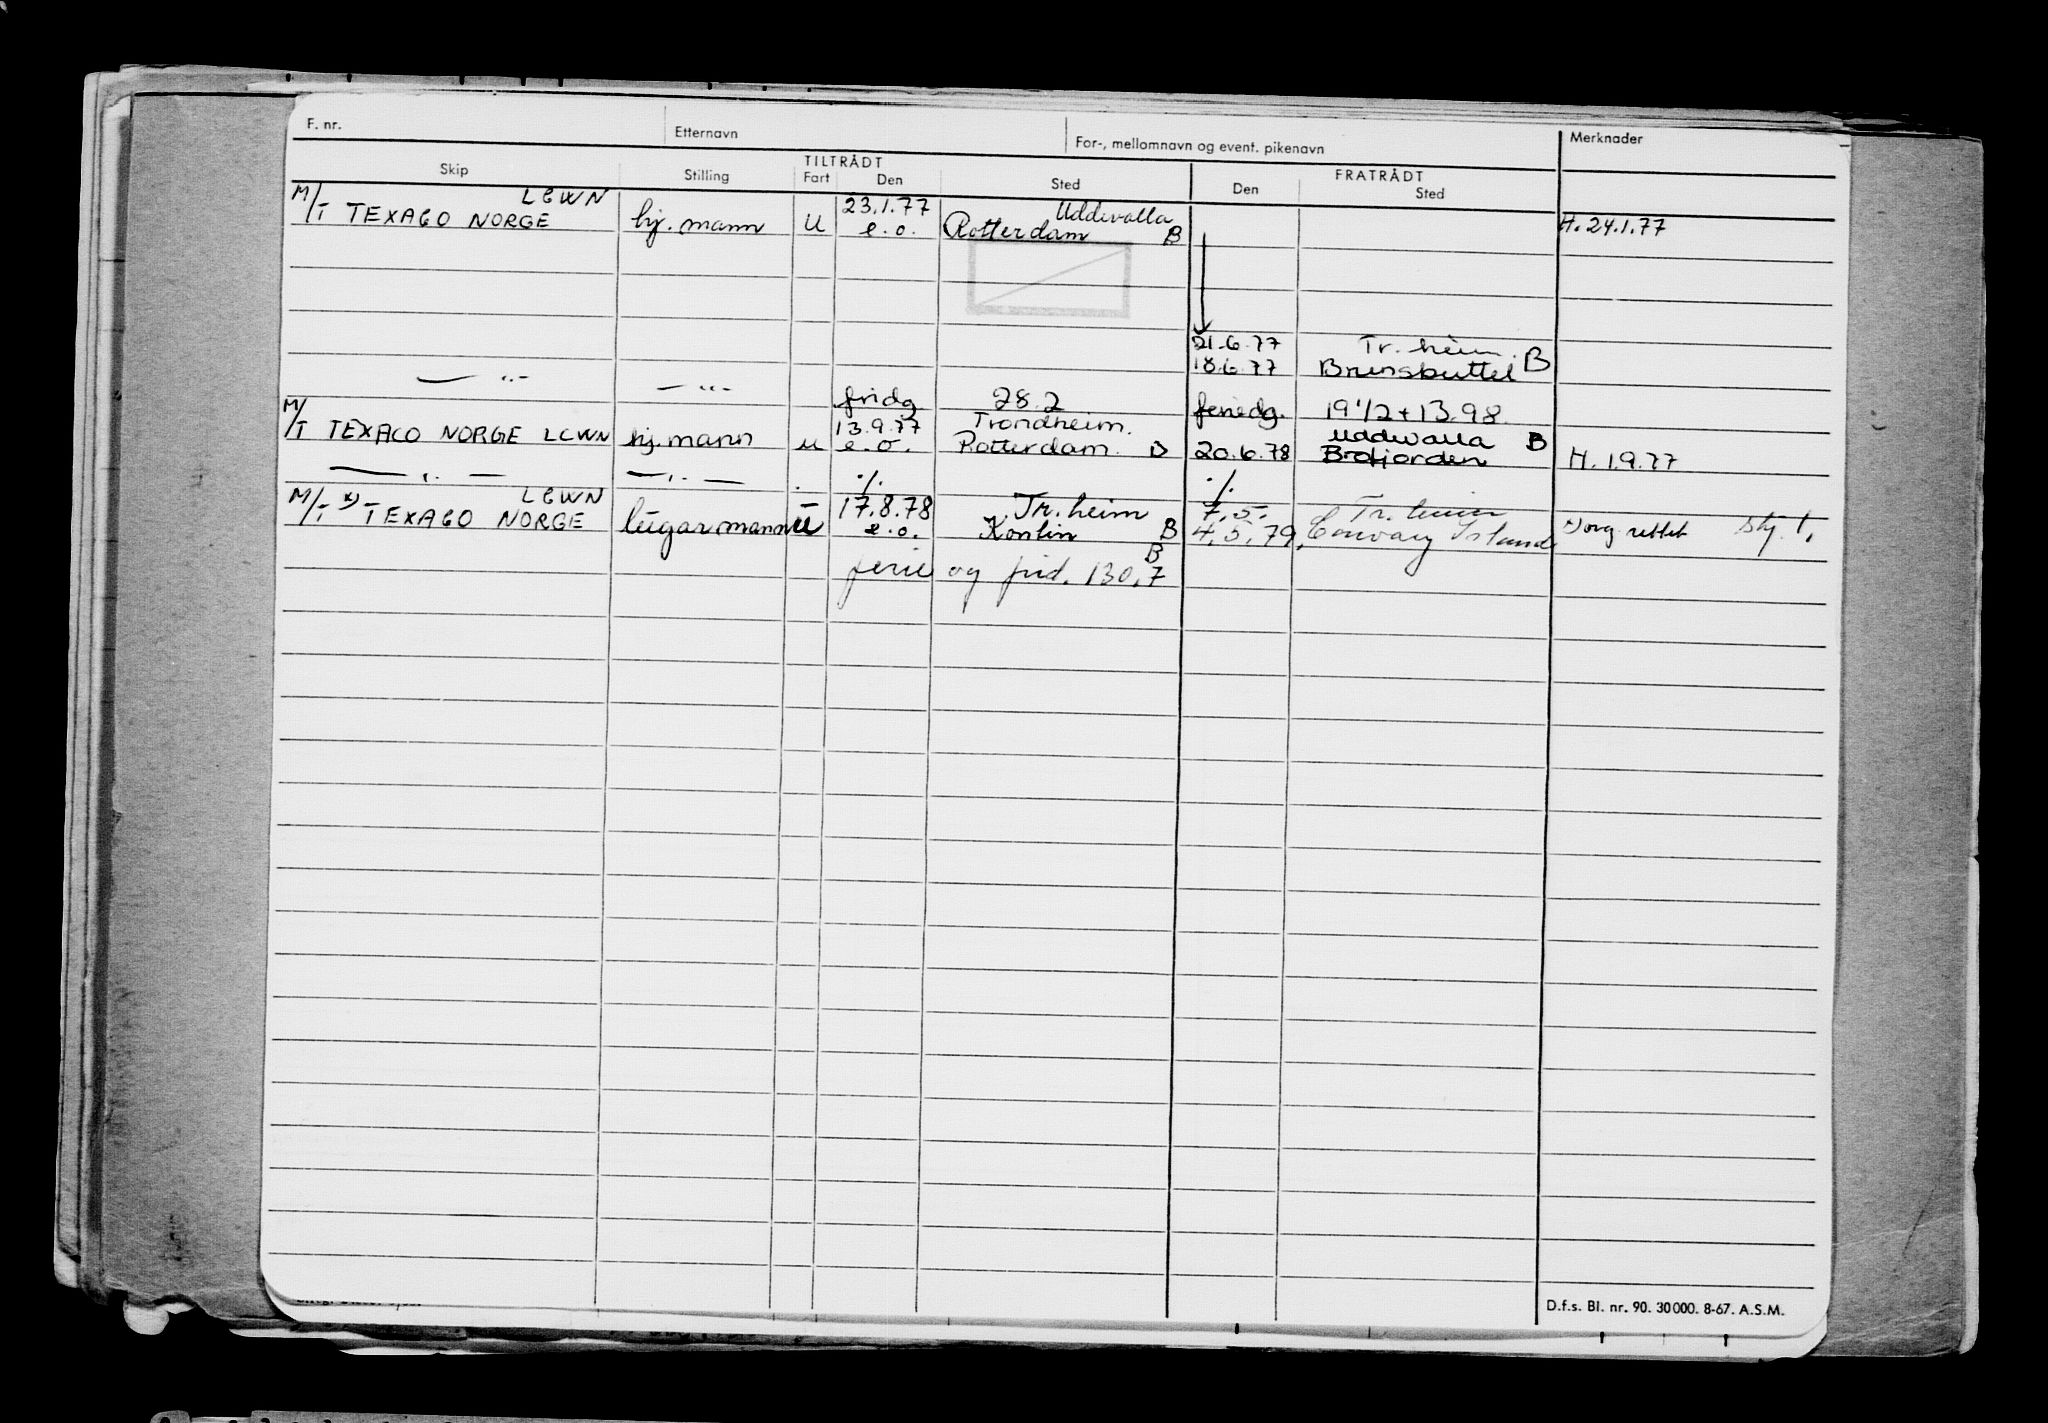 F. nr. Etternavn For-, mellomnavn og event. pikenavn Merknader
TILTRÅDT FRATRÅDT
Skip Stilling Fart Den Sted Den Sted
LCWN 23.1.77 Uddevalla
M/T TEXACO NORGE hj. mann U e.o. Rotterdam B H. 24.1.77
21.6.77 Tr.heim
18.6.77 Brunsbuttel B
— " — — " —
fridg 28.2 feriedg. 19 1/2 + 13.98
13.9.77 Trondheim. Uddevalla
M/T TEXACO NORGE LCWN hj. mann u e.o. Rotterdam B 20.6.78 Brofjorden B H. 1.9.77
— " — — " — ./. ./.
LCWN 17.8.78 Tr.heim 7.5. Tr.heim
M/T x) TEXACO NORGE lugarmann U e.o. B 4.5.79. Island x) org. rettet
B
ferie og frid. 130,7
D.f.s. Bl. nr. 90. 30000. 8-67. A.S.M.